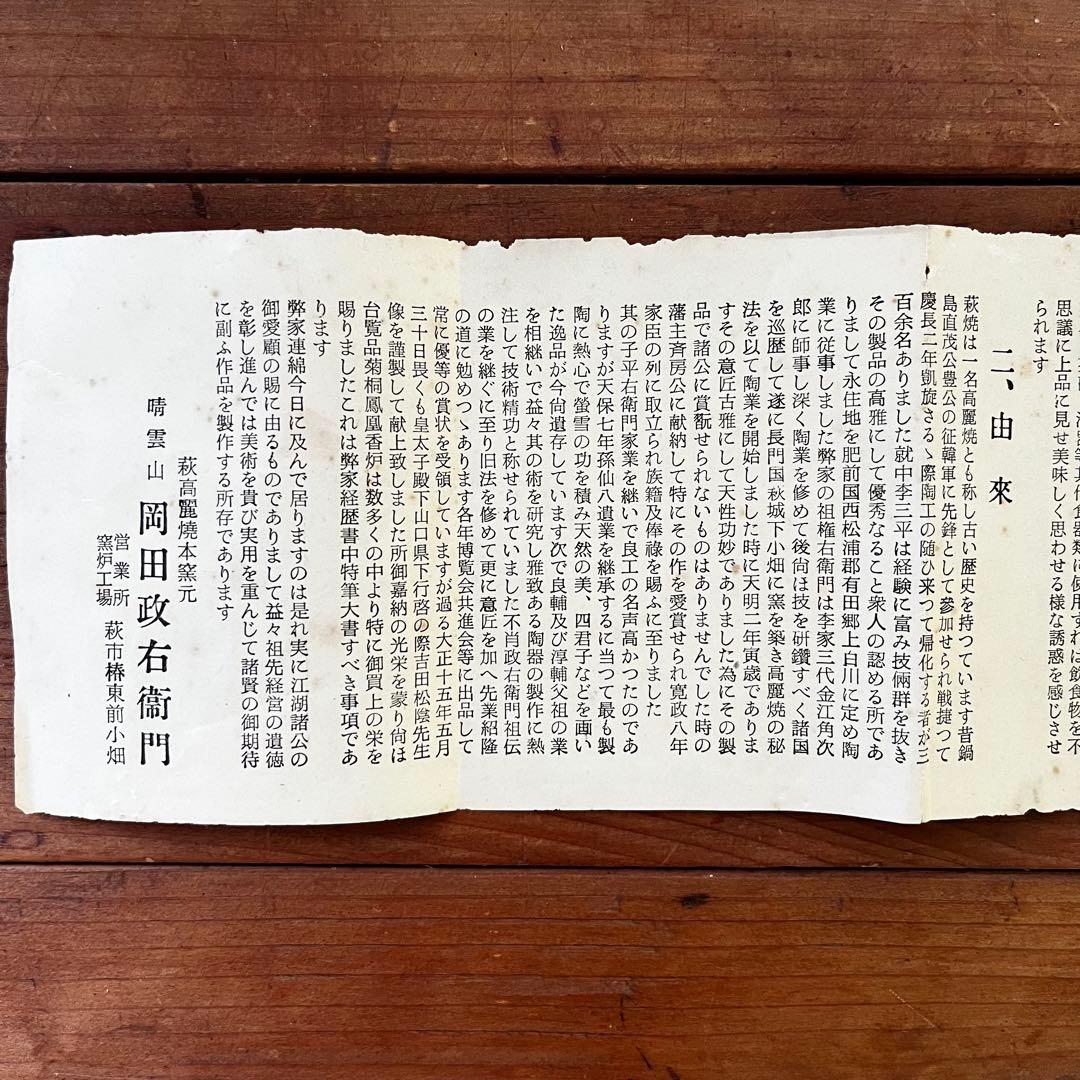 思議に上品に見せ美味しく思わせる様な誘惑を感じさせ
られます
二、由來
萩焼は一名高麗焼とも称し古い歴史を持つています昔鍋
島直茂公豊公の征韓軍に先鋒として参加せられ戦捷つて
慶長二年凱旋さるゝ際陶工の随ひ来つて帰化する者が三
百余名ありました就中李三平は経験に富み技倆群を抜き
その製品の高雅にして優秀なること衆人の認める所であ
りまして永住地を肥前国西松浦郡有田郷上白川に定め陶
業に従事しました弊家の祖権右衛門は李家三代金江角次
郎に師事し深く陶業を修めて後尚ほ技を研鑽すべく諸国
を巡歴して遂に長門国萩城下小畑に窯を築き高麗焼の秘
法を以て陶業を開始しました時に天明二年寅歳でありま
すその意匠古雅にして天性功妙でありました為にその製
品で諸公に賞翫せられないものはありませんでした時の
藩主斉房公に献納して特にその作を愛賞せられ寛政八年
家臣の列に取立られ族籍及俸祿を賜ふに至りました
其の子平右衛門家業を継いで良工の名声高かつたのであ
りますが天保七年孫仙八遺業を継承するに当つて最も製
陶に熱心で螢雪の功を積み天然の美、四君子などを画い
た逸品が今尚遺存しています次で良輔及び淳輔父祖の業
を相継いで益々其の術を研究し雅致ある陶器の製作に熱
注して技術精功と称せられていました不肖政右衛門祖伝
の業を継ぐに至り旧法を修めて更に意匠を加へ先業紹隆
の道に勉めつゝあります各年博覧会共進会等に出品して
常に優等の賞状を受領していますが過る大正十五年五月
三十日畏くも皇太子殿下山口県下行啓の際吉田松陰先生
像を謹製して献上致しました所御嘉納の光栄を蒙り尚ほ
台覧品菊桐鳳凰香炉は数多くの中より特に御買上の栄を
賜りましたこれは弊家経歴書中特筆大書すべき事項であ
ります
弊家連綿今日に及んで居りますのは是れ実に江湖諸公の
御愛顧の賜に由るものでありまして益々祖先経営の遺徳
を彰し進んでは美術を貴び実用を重んじて諸賢の御期待
に副ふ作品を製作する所存であります
萩高麗燒本窯元
晴雲山 岡田政右衞門
営業所
窯炉工場 萩市椿東前小畑